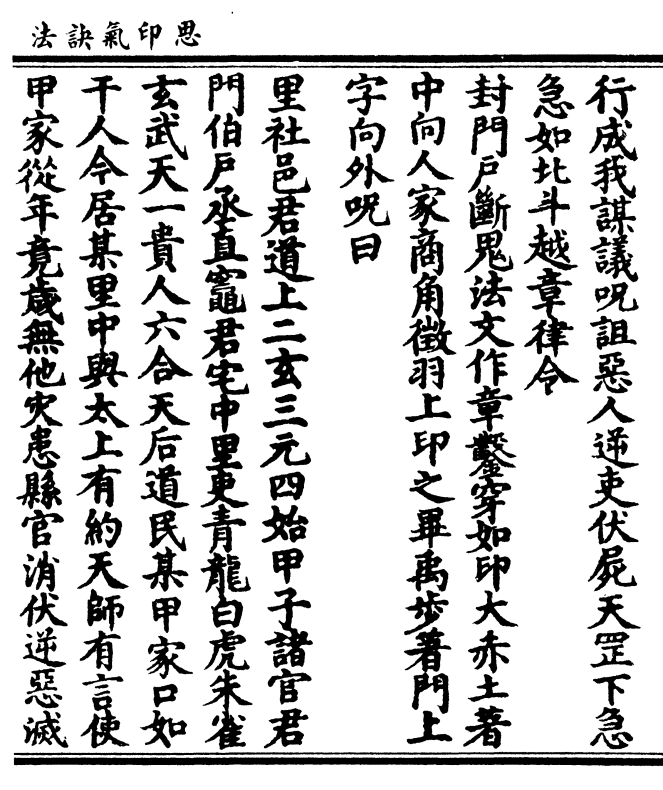 思印氣訣法
行成我謀議呪詛惡人逆吏伏屍天罡下急
急如北斗越章律令
封門戶斷鬼法文作章鑿穿如印大赤土著
中向人家商角徵羽上印之畢禹步著門上
字向外呪曰
里社邑君道上二玄三元四始甲子諸官君
門伯戶丞直竈君宅中里吏青龍白虎朱雀
玄武天一貴人六合天后道民某甲家口如
干人今居某里中與太上有約天師有言使
甲家從年竟歲無他灾恚縣官消伏逆惡滅